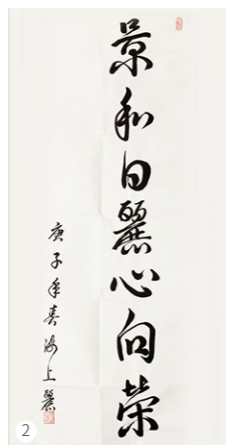 景和日麗心向榮
庚子年春海上麗
2